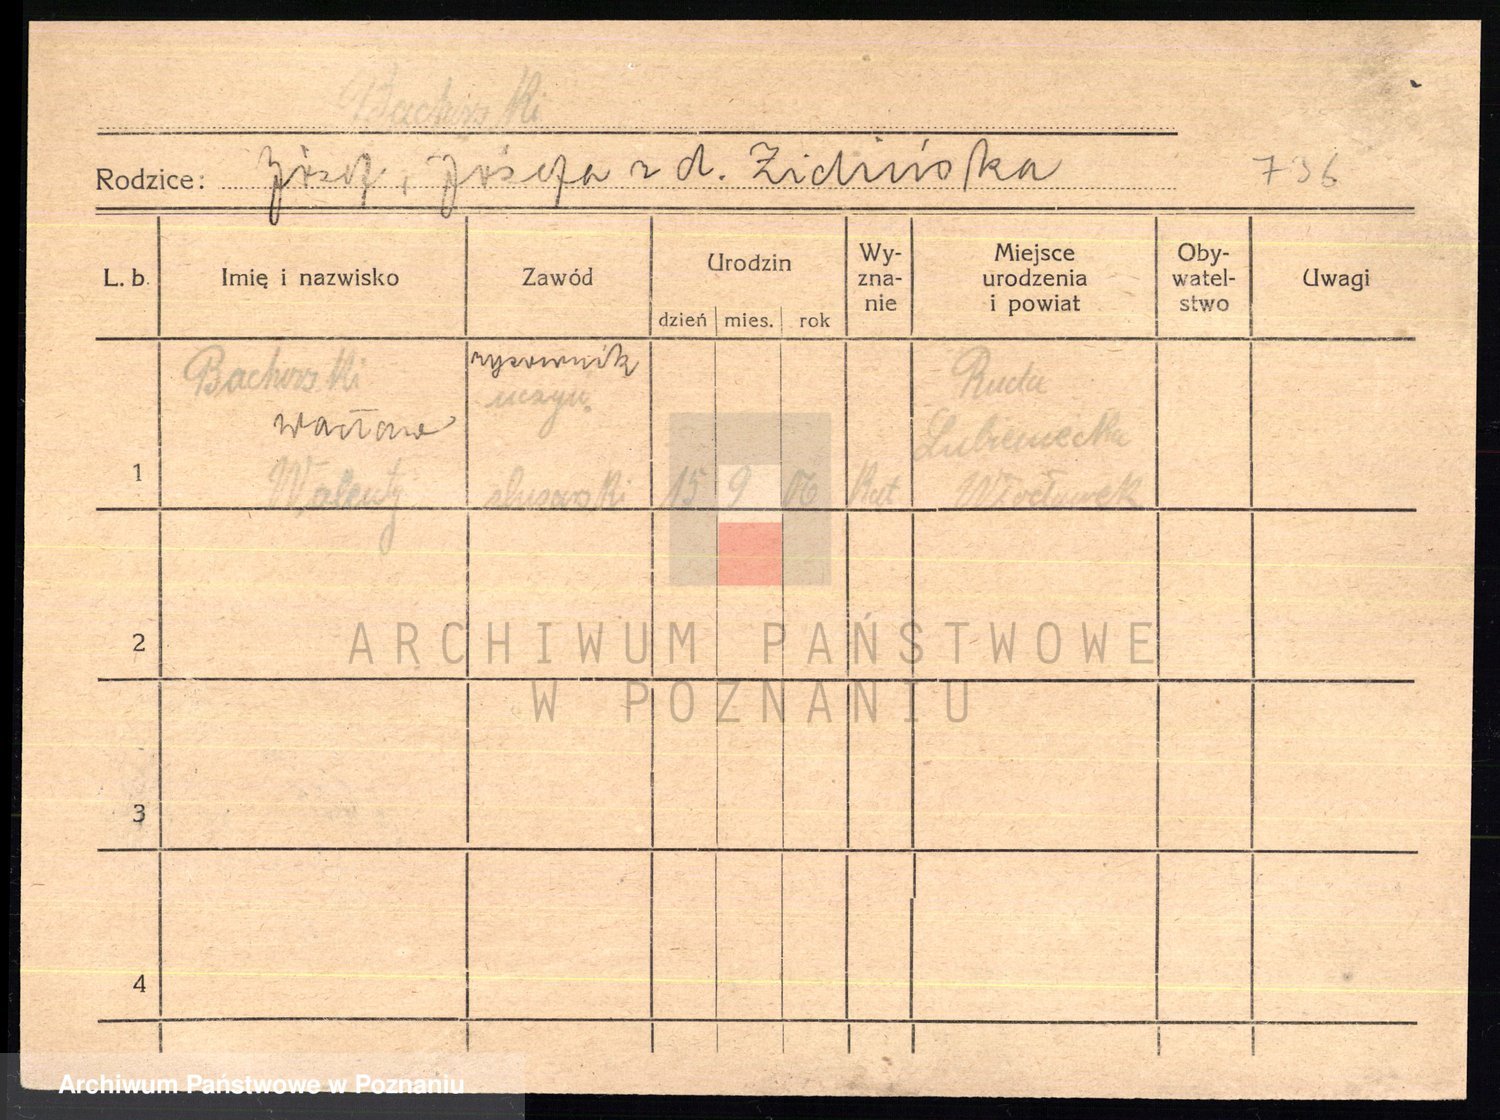 Bachorski
Rodzice: Józef, Józefa z d. Zidińska 736
L. b. Imię i nazwisko Zawód Urodzin Wy- Miejsce Oby- Uwagi
zna- urodzenia watel-
nie i powiat stwo
dzień mies. rok
Bachorski rysownik Ruda
Wacław uczyń. Lubieniecka
1 Walenty ślusarski 15 9 06 Kat Włocławek
2
3
4
ARCHIWUM PAŃSTWOWE
W POZNANIU
Archiwum Państwowe w Poznaniu